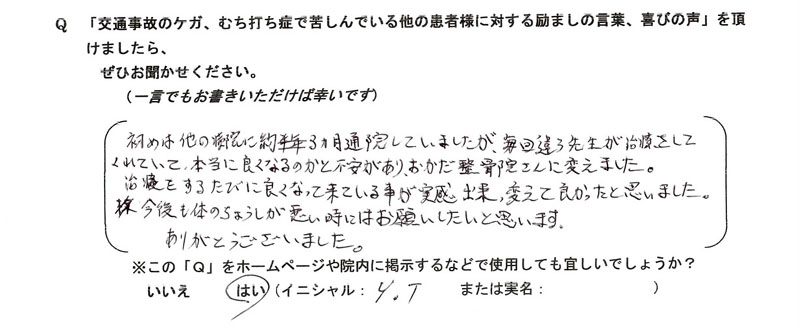 Q 「交通事故のケガ、むち打ち症で苦しんでいる他の患者様に対する励ましの言葉、喜びの声」を頂
けましたら、
ぜひお聞かせください。
（一言でもお書きいただければ幸いです）
初めは他の病院に約3ヵ月通院していましたが、毎回違う先生が治療をして
くれていて、本当に良くなるのかと不安があり、おかだ整骨院さんに変えました。
治療をするたびに良くなって来ている事が実感出来、変えて良かったと思いました。
今後も体のちょうしが悪い時にはお願いしたいと思います。
ありがとうございました。
※この「Q」をホームページや院内に掲示するなどで使用しても宜しいでしょうか？
いいえ はい（イニシャル： Y.T または実名： ）